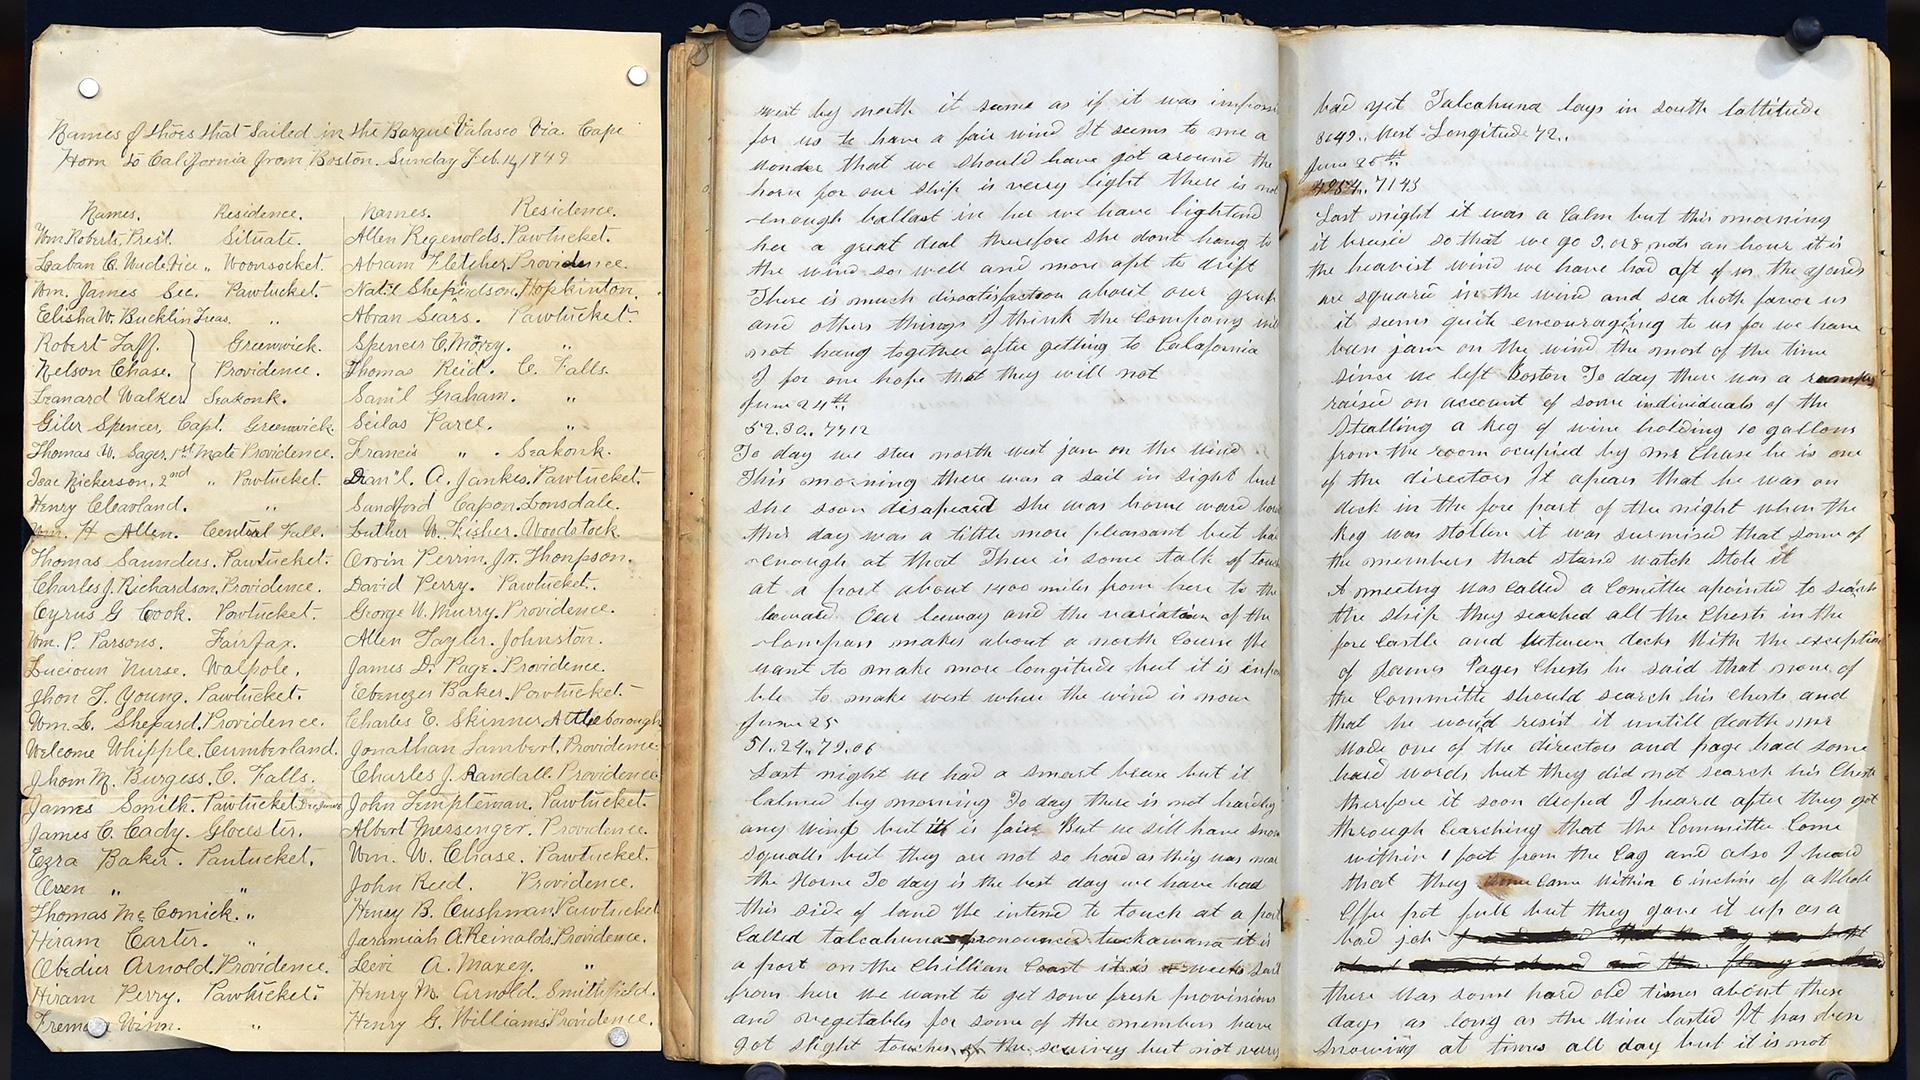 Names of those that Sailed in the Barque Valasco Via Cape
Horn to California from Boston. Sunday Feb. 14/1849
Names. Residence.
Wm Roberts, Prest. Situate.
Laban C. Wade Vice „ Woonsocket.
Wm. James Sec. Pawtucket.
Elisha W. Bucklin Treas. „
Robert Taff. Greenwick.
Nelson Chase. Providence.
Leanard Walker Seakonk.
Giler Spencer, Capt. Greenwick.
Thomas W. Sager, 1st Mate Providence.
Isac Nickerson, 2nd „ Pawtucket.
Henry Cleavland. „
Wm. H Allen. Central Fall.
Thomas Saunders. Pawtucket.
Charles J. Richardson, Providence.
Cyrus G Cook. Pawtucket.
Wm. P. Parsons. Fairfax.
Lucioun Nurse. Walpole.
Jhon T. Young. Pawtucket.
Wm. L. Shepard. Providence.
Welcome Whipple. Cumberland.
Jhom M. Burgess. C. Falls.
James Smith. Pawtucket.
James C. Cady. Gloester.
Ezra Baker. Pantucket.
Oren „ „
Thomas Mc Comick. „
Hiram Carter. „
Obedier Arnold. Providence.
Hiram Perry. Pawtucket.
Winn. „
Names. Residence.
Allen Regenolds. Pawtucket.
Abram Fletcher. Providence.
Nat'l Sheperdson. Hopkinton.
Abran Sears. Pawtucket.
Spencer C. Moxey. „
Thomas Reid. C. Falls.
Sam'l Graham. „
Seilas Parel. „
Francis „ . Seakonk.
Dan'l. A. Jankes. Pawtucket.
Sandford Capon. Lonsdale.
Luther W. Fisher. Woodstock.
Orrin Perrin. Jr. Thonpson.
David Perry. Pawtucket.
George W. Murry. Providence.
Allen Tayler. Johnston.
James D. Page. Providence.
Ebenezer Baker. Pawtucket.
Charles E. Skinner. Attleborough
Jonathan Lambert. Providence.
Charles J. Randall. Providence.
John Templeman. Pawtucket.
Albert Messenger. Providence.
Wm. W. Chase. Pawtucket.
John Reed. Providence.
Henry B. Cushman. Pawtucket
Jaramiah A. Reinalds. Providence.
Leevi A. Maxey. „
Henry M. Arnold. Smithfield.
Henry G. Williams. Providence.
west by north it sums as if it was imposs
for us to have a fair wind It seems to me a
wonder that we should have got around the
horn for our ship is verry light there is not
enough ballast in her we have lightend
her a great deal therefore she dont hang to
the wind so well and more apt to drift
There is much disatisfaction about our grub
and others things I think the Company will
not hang together after getting to Calafornia
I for one hope that they will not
June 24th
52.30.. 7712
To day we stear north west jam on the wind
This morning there was a sail in sight but
she soon disapeard she was home ward
this day was a little more pleasant but bad
enough at that There is some talk of touch
at a port about 1400 miles from here to the
leward Our leeway and the variation of the
Compass makes about a north Course We
want to make more longitude but it is impo
ble to make west where the wind is now
June 25
51..24..79.06
Last night we had a smart brease but it
Calmed by morning To day there is not hardly
any wind but it is fair But we still have snow
squalls but they are not so hard as they was near
the Horne To day is the best day we have had
this side of land We intend to touch at a port
Called talcahuna pronounced tuckawana it is
a port on the Chillian Coast it is a weeks sail
from here We want to get some fresh provisions
and vegetables for some of the members have
got slight touches of the scurvey but not verry
bad yet Talcahuna lays in south lattitude
3649.. West Longitude 72..
June 26th
4954.. 7143
Last night it was a Calm but this morning
it breised so that we go 9. or 8 nots an hour it is
the heavist wind we have had aft of us the yards
are square in the wind and sea both favor us
it seems quite encouraging to us for we have
been jam on the wind the most of the time
since we left Boston To day there was a rumpus
raised on account of some individuals of the
Stealling a Keg of wine holding 10 gallons
from the room ocupied by mr Chase he is one
of the directors It apears that he was on
deck in the fore part of the night when the
Keg was stollen it was surmised that some of
the members that stand watch Stole it
A meeting was called a Comittee apointed to search
the ship they seached all the Chests in the
fore Castle and between decks With the exception
of James Pages Chests he said that none of
the Committe should search his Chests and
that he would resist it untill death mr
Wade one of the directors and page had some
hard words but they did not search his Chests
therefore it soon droped I heard after they got
through Cearching that the Committe Come
within 1 foot from the Cag and also I heard
that they came Within 6 inchis of a Whole
Coffee pot full but they gave it up as a
bad job
there was some hard old times about these
days as long as the Wine lasted It has been
snowing at times all day but it is not